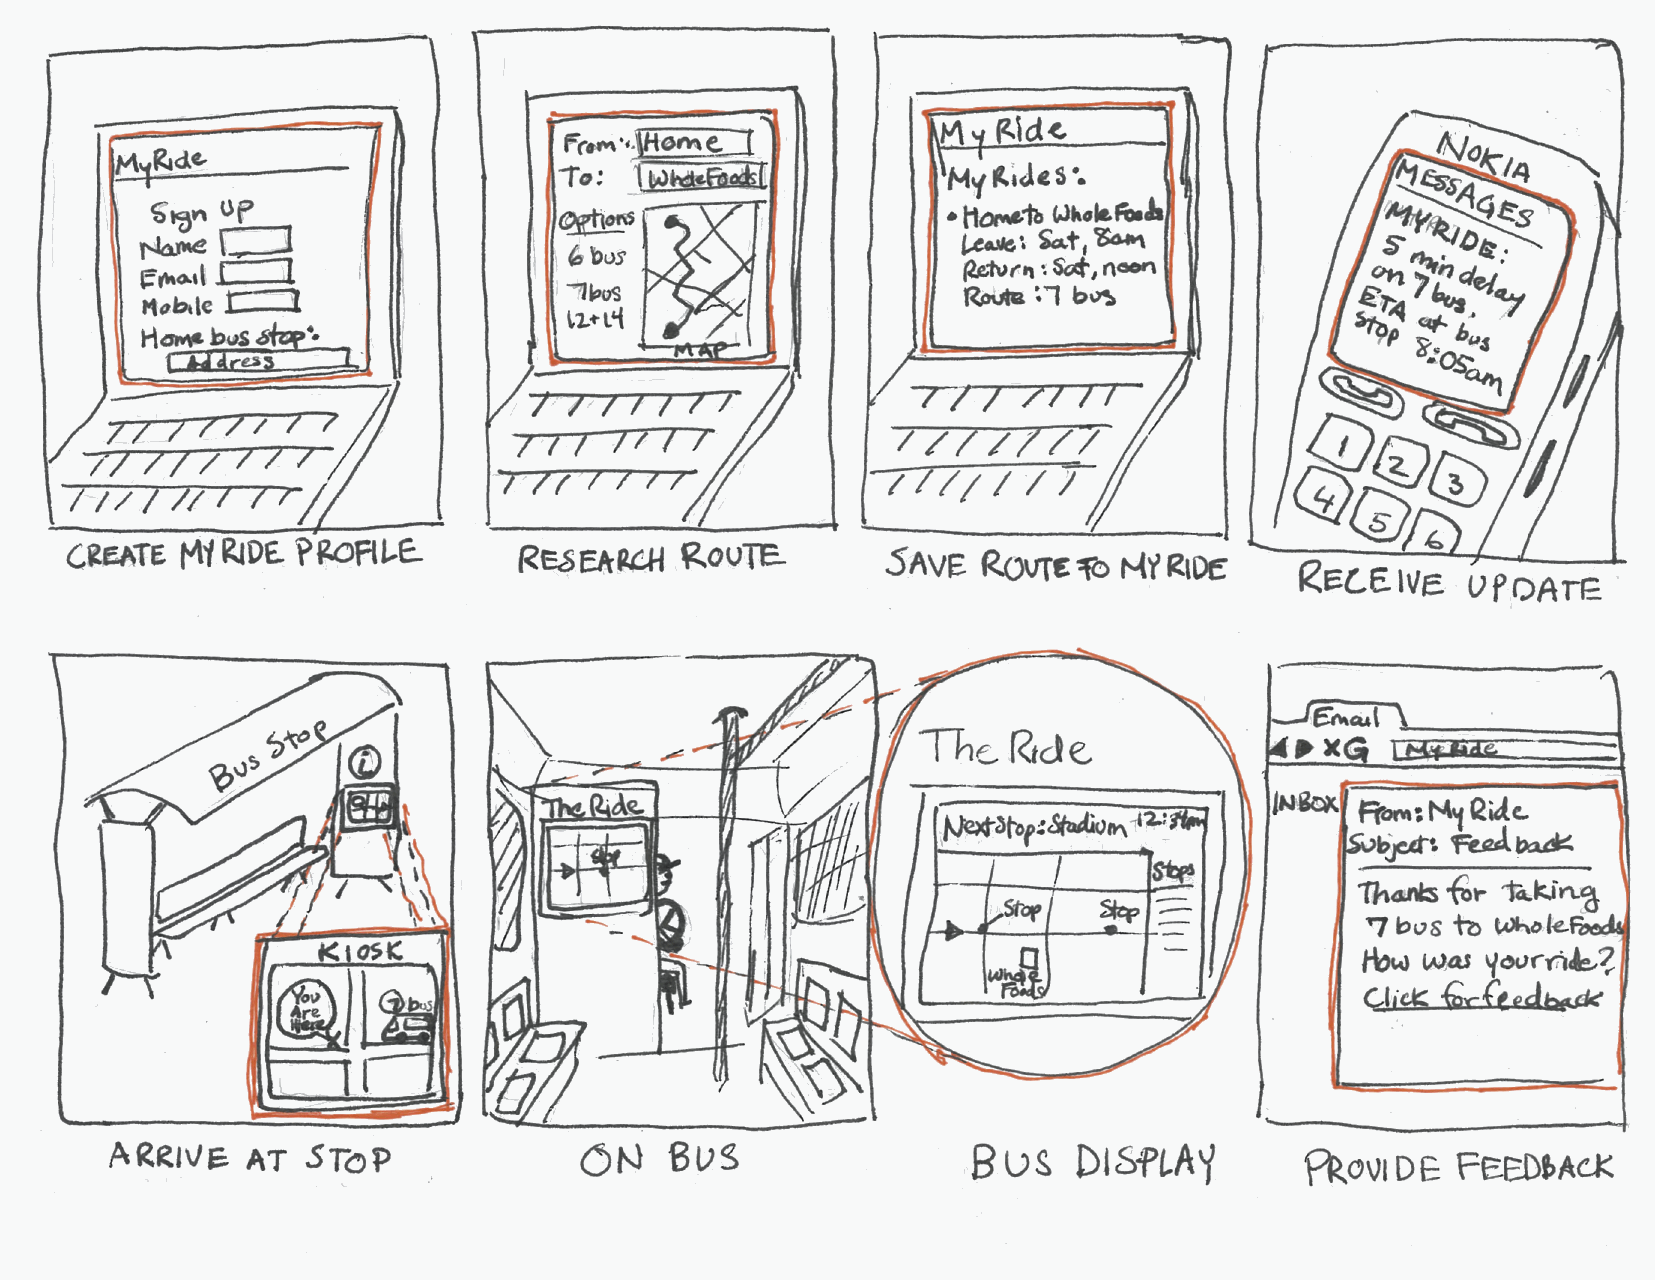 MyRide
Sign up
Name
Email
Mobile
Home bus stop:
Address
CREATE MYRIDE PROFILE
From: Home
To: Whole Foods
Options
6 bus
7 bus
12+14
MAP
RESEARCH ROUTE
My Ride
My Rides:
• Home to Whole Foods
Leave: Sat, 8am
Return: Sat, noon
Route: 7 bus
SAVE ROUTE TO MYRIDE
NOKIA
MESSAGES
MYRIDE:
5 min delay
on 7 bus.
ETA at bus
stop 8:05am
1 2 3
4 5 6
RECEIVE UPDATE
Bus Stop
i
KIOSK
You
Are
Here
7 bus
ARRIVE AT STOP
The Ride
Stop
ON BUS
The Ride
Next Stop: Stadium 12:34pm
Stops
Stop Stop
Whole
Foods
BUS DISPLAY
Email
X G My Ride
INBOX
From: My Ride
Subject: Feedback
Thanks for taking
7 bus to Whole Foods
How was your ride?
Click for feedback
PROVIDE FEEDBACK